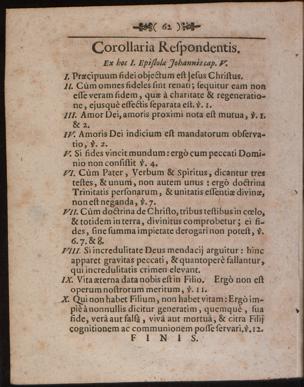 ( 62 )
Corollaria Respondentis.
Ex hoc I. Epistola Johannis cap. V.
I. Præcipuum fidei objectum est Jesus Christus.
II. Cùm omnes fideles sint renati; sequitur eam non
esse veram fidem, quæ à charitate & regeneratio-
ne, ejusquè effectis separata est. ỳ. 1.
III. Amor Dei, amoris proximi nota est mutua, ỳ. 1.
& 2.
IV. Amoris Dei indicium est mandatorum observa-
tio, ỳ. 2.
V. Si fides vincit mundum: ergò cum peccati Domi-
nio non consistit ỳ. 4.
VI. Cùm Pater, Verbum & Spiritus, dicantur tres
testes, & unum, non autem unus: ergò doctrina
Trinitatis personarum, & unitatis essentiæ divinæ,
non est neganda, ỳ. 7.
VII. Cùm doctrina de Christo, tribus testibus in cœlo,
& totidem in terra, divinitus comprobetur; ei fi-
des, sine summa impietate derogari non potest, ỳ.
6. 7. & 8.
VIII. Si incredulitate Deus mendacij arguitur: hinc
apparet gravitas peccati, & quantoperè fallantur,
qui incredulitatis crimen elevant.
IX. Vita æterna data nobis est in Filio. Ergò non est
operum nostrorum meritum, ỳ. 11.
X. Qui non habet Filium, non habet vitam: Ergò im-
piè à nonnullis dicitur generatim, quemquè, sua
fide, verâ aut falsâ, vivâ aut mortuâ, & citra Filij
cognitionem ac communionem posse servari, ỳ. 12.
F I N I S.